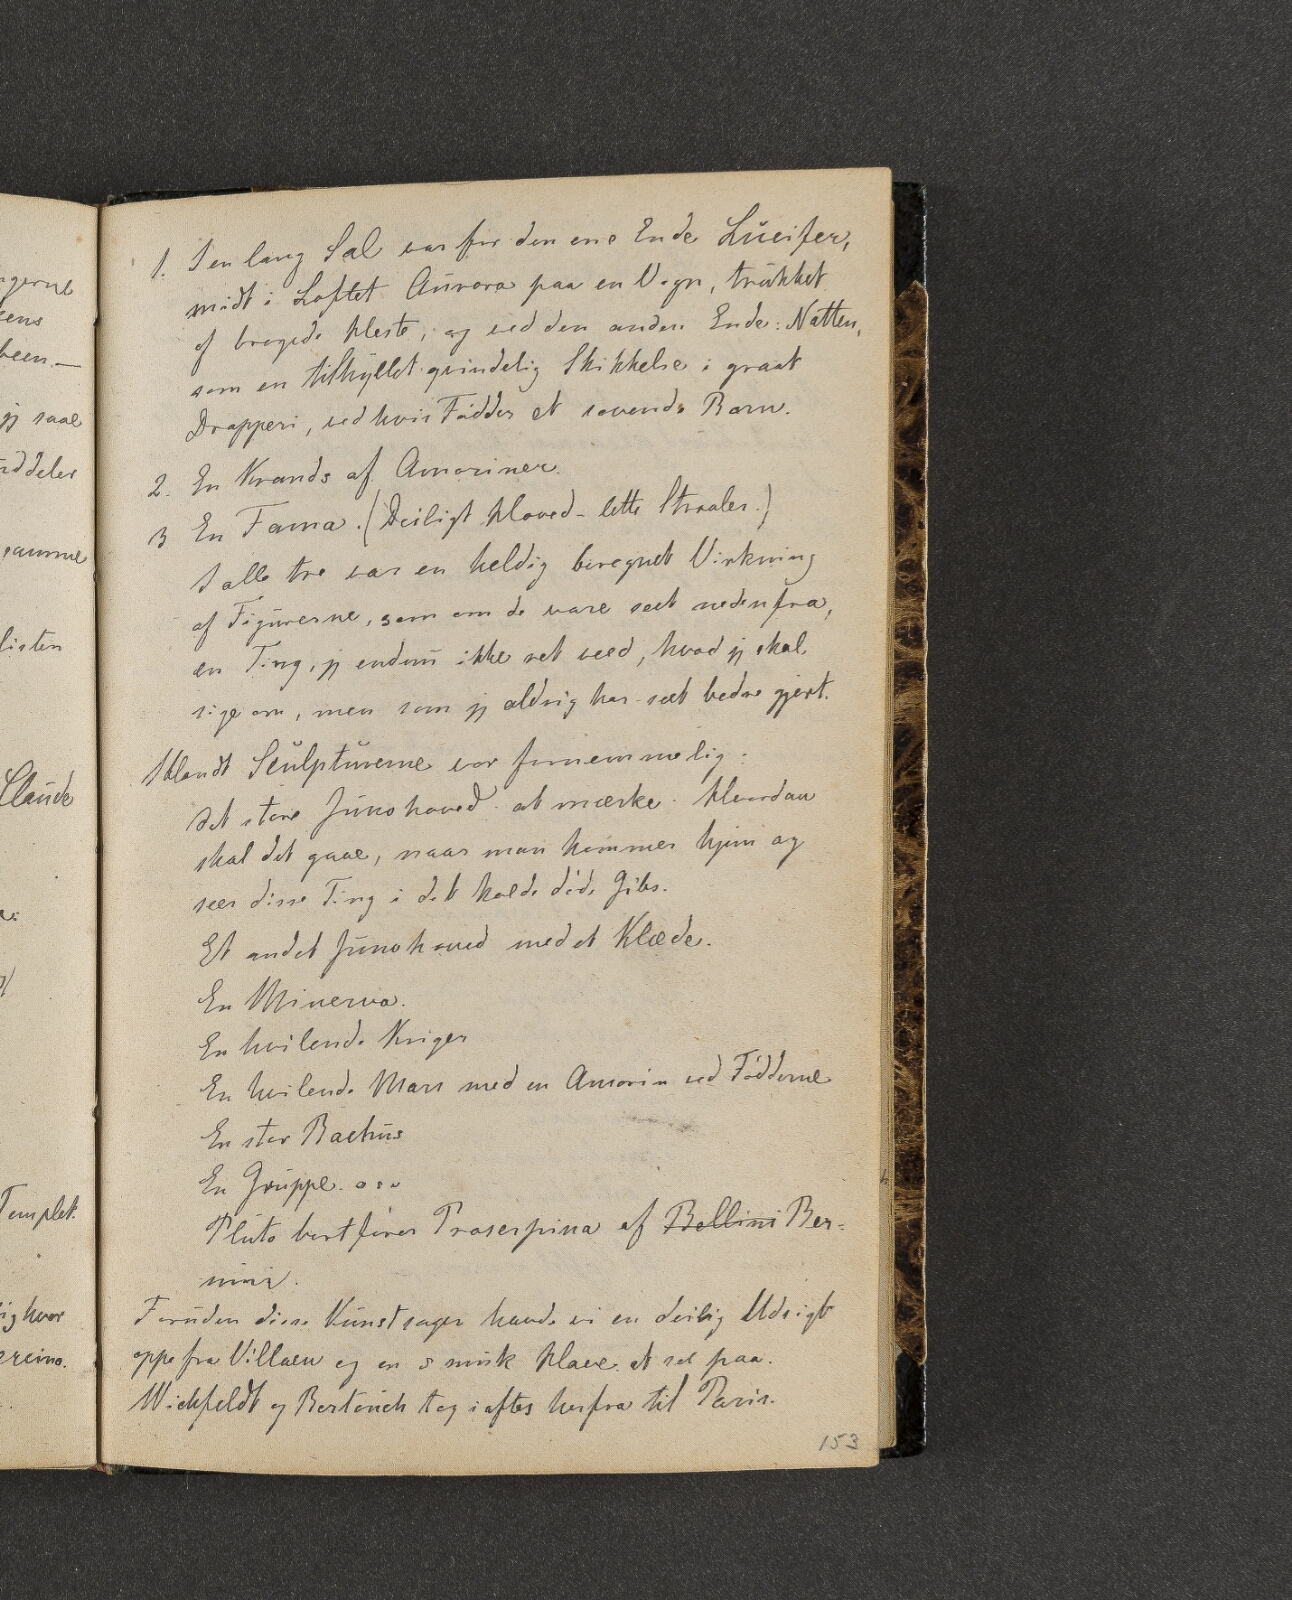 ngerne
sens
been. —
jj saae
uddeler
samme
listen
Claude
Templet.
ig hvor
ercino.
1. I en lang Sal var for den ene Ende Lucifer,
midt i Loftet Aurora paa en Vogn, trukket
af brogede Heste, og ved den anden Ende: Natten,
som en tilhyllet qvindelig Skikkelse i graat
Drapperi, ved hvis Fødder et sovende Barn.
2. En Krands af Amoriner.
3 En Fama. (Deiligt Hoved – lette Straaler.)
I alle tre var en heldig beregnet Virkning
af Figurerne, som om de vare seet nedenfra,
en Ting, jj endnu ikke ret veed, hvad jj skal
sige om, men som jj aldrig har seet bedre gjort.
Iblandt Sculpturerne var fornemmelig:
det store Junohoved at mærke. Hvordan
skal det gaae, naar man kommer hjem og
seer disse Ting i det kolde døde Gibs.
Et andet Junohoved med et Klæde.
En Minerva.
En hvilende Kriger
En hvilende Mars med en Amorin ved Fødderne
En stor Bachus
En Gruppe. o s v
Pluto bortfører Proserpina af Bellini Ber=
nini.
Foruden disse Kunstsager havde vi en deilig Udsigt
oppe fra Villaen og en smuk Have at see paa.
Wichfeldt og Bertouch tog iaftes herfra til Paris.
153